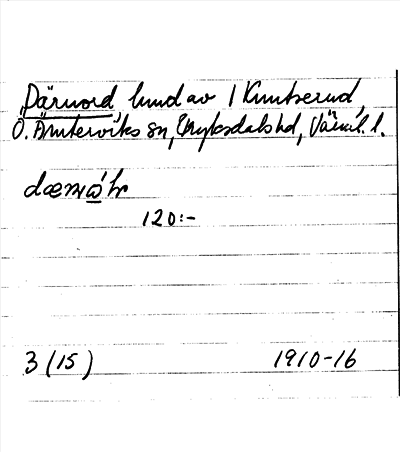 Därnord hmd av 1 Knutserud,
Ö. Ämterviks sn, Fryksdals hd, Värml. l.
120:-
3 (15) 1910-16